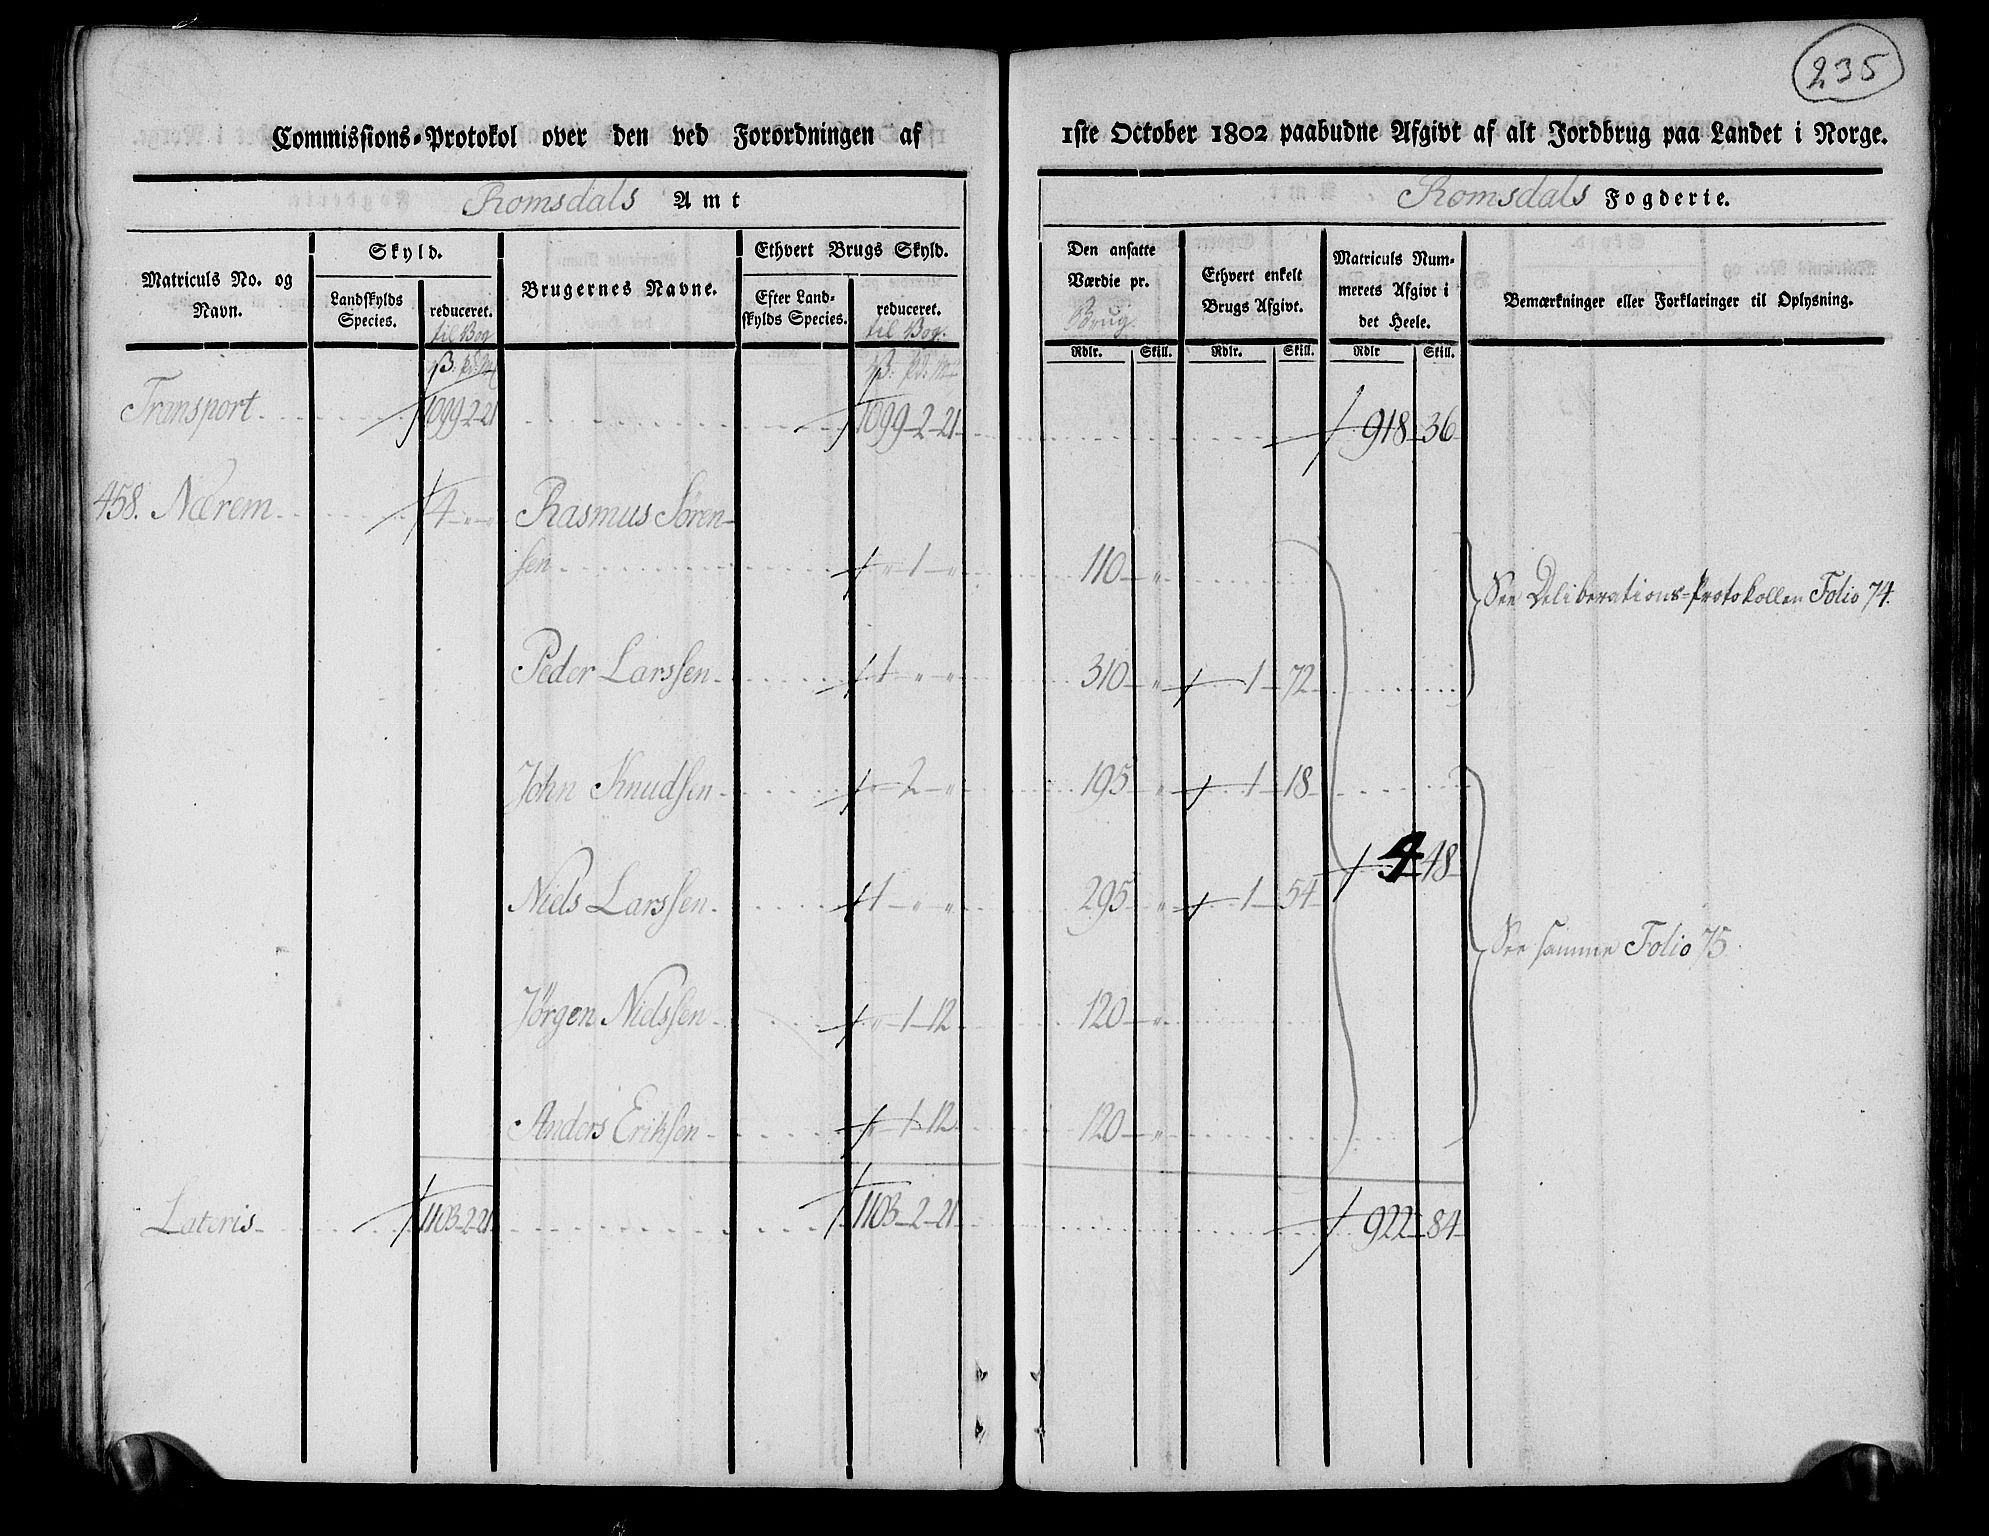 235
Commissions-Protokol over den ved Forordningen af 1ste October 1802 paabudne Afgivt af alt Jordbrug paa Landet i Norge.
Romsdals Amt
Romsdals Fogderie.
Matriculs No. og Navn.
Skyld.
Landskylds Species.
reduceret.
til Bog
Brugernes Navne.
Ethvert Brugs Skyld.
Efter Land-
skylds Species.
reduceret.
til Bog.
Den ansatte
Værdie pr.
Brug.
Ethvert enkelt
Brugs Afgivt.
Matriculs Num-
merets Afgivt i
det Heele.
Bemærkninger eller Forklaringer til Oplysning.
Rdlr. Skill. Rdlr. Skill. Rdlr Skill.
Transport 1099-2-21 1099-2-21 918-36
458. Nærem 4 - " - " Rasmus Søren-
sen " - 1 - " 110 - "
See Deliberations-Protokollen Folio 74.
Peder Larssen 1 - " - " 310 - " 1 - 72
John Knudsen " - 2 - " 195 - " 1 - 18
4 48
Niels Larssen 1 - " - " 295 - " 1 - 54
See samme Folio 75
Jørgen Nielssen " - 1 - 12 120 - "
Anders Eriksen " - 1 - 12 120 - "
Lateris 1103-2-21 1103-2-21 922-84